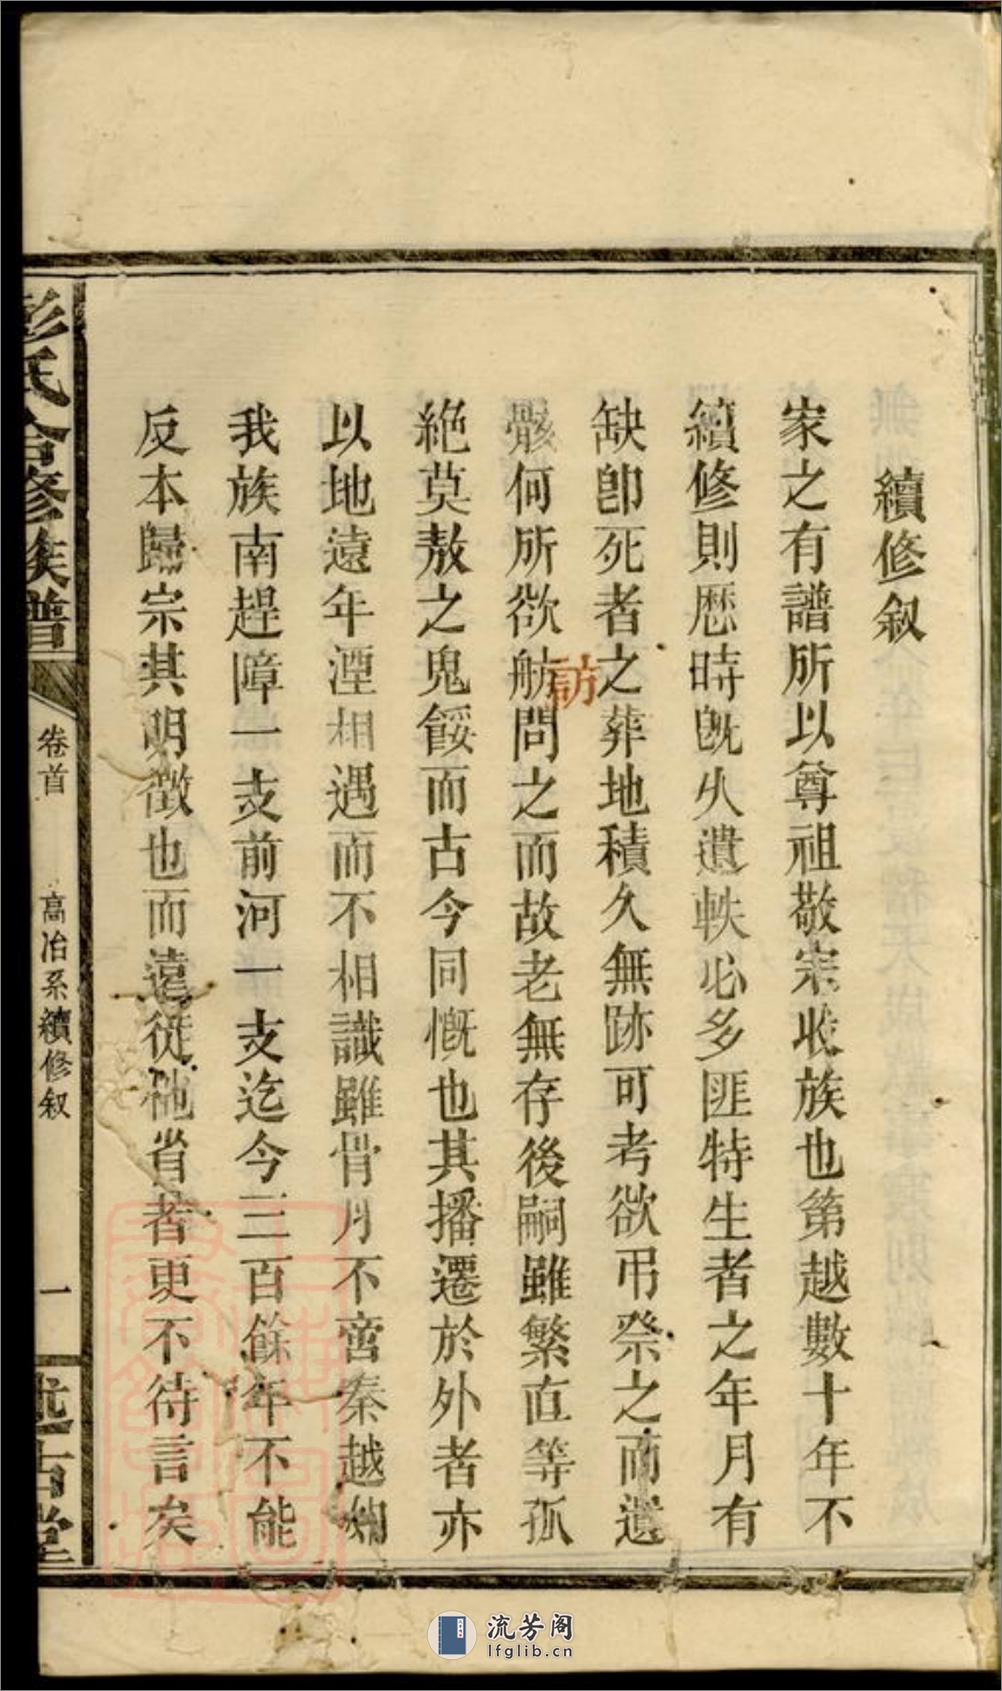 續修叙
家之有譜所以尊祖敬宗收族也第越數十年不
續修則歷時旣久遺軼必多匪特生者之年月有
缺卽死者之葬地積久無跡可考欲弔祭之而遺
骸何所欲舫問之而故老無存後嗣雖繁直等孤
訪
絕莫敖之鬼餒而古今同慨也其播遷於外者亦
以地遠年湮相遇而不相識雖骨月不啻秦越如
我族南趕障一支前河一支迄今三百餘年不能
反本歸宗其明徵也而遠徙他省者更不待言矣
彭氏合修族譜
卷首
高冶系續修叙
一
述古堂
流芳阁
lfglib.cn